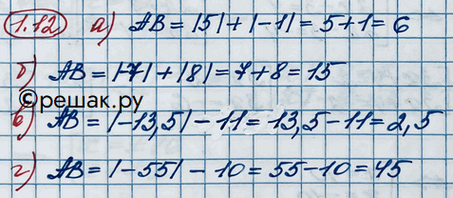 1.12 а) AB = |5| + |-1| = 5 + 1 = 6
б) AB = |-7| + |8| = 7 + 8 = 15
©решак.ру
в) AB = |-13,5| - 11 = 13,5 - 11 = 2,5
г) AB = |-55| - 10 = 55 - 10 = 45